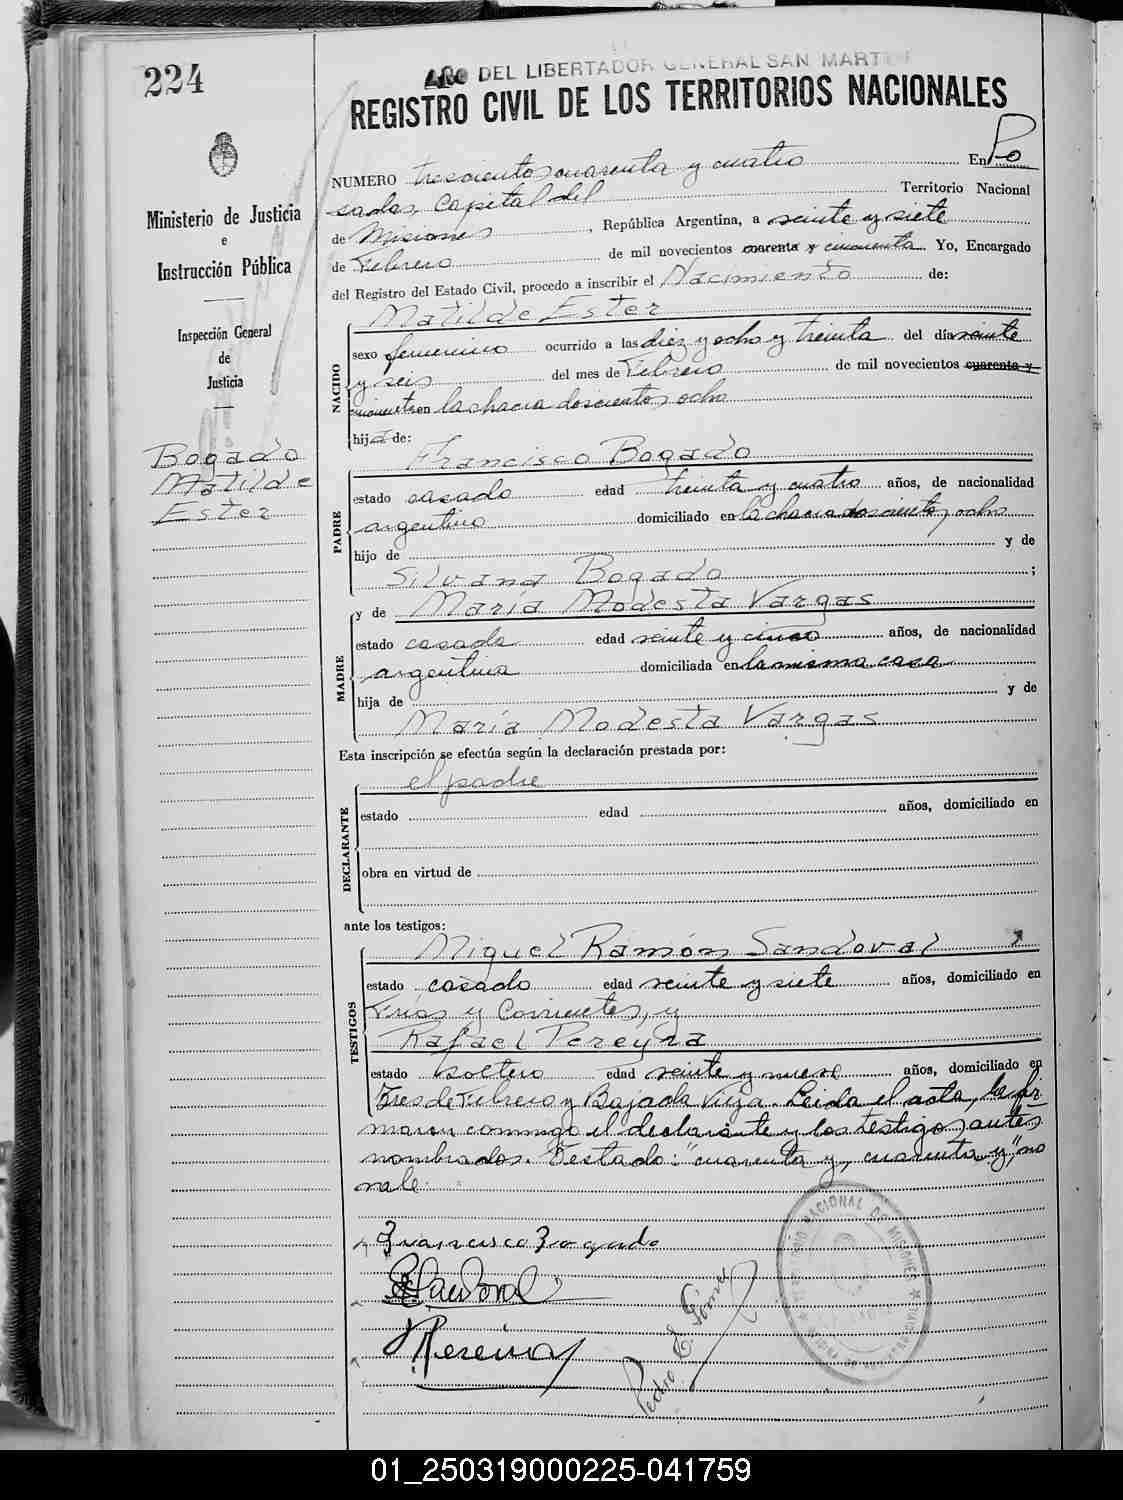 224
AÑO DEL LIBERTADOR GENERAL SAN MARTIN
REGISTRO CIVIL DE LOS TERRITORIOS NACIONALES
Ministerio de Justicia
e
Instrucción Pública
Inspección General
de
Justicia
Bogado
Matilde
Ester
NUMERO trescientos cuarenta y cuatro En Po
sadas, Capital del Territorio Nacional
de Misiones, República Argentina, a veinte y siete
de Febrero de mil novecientos cuarenta y cincuenta Yo, Encargado
del Registro del Estado Civil, procedo a inscribir el Nacimiento de:
Matilde Ester
NACIDO
sexo femenino ocurrido a las diez y ocho y treinta del día veinte
y seis del mes de Febrero de mil novecientos cuarenta y
cincuenta en la chacra doscientos ocho
hija de:
Francisco Bogado
PADRE
estado casado edad treinta y cuatro años, de nacionalidad
argentino domiciliado en la chacra doscientos ocho
hijo de y de
Silvana Bogado ;
y de María Modesta Vargas
MADRE
estado casada edad veinte y cinco años, de nacionalidad
argentina domiciliada en la misma casa
hija de y de
María Modesta Vargas
Esta inscripción se efectúa según la declaración prestada por:
el padre
DECLARANTE
estado edad años, domiciliado en
obra en virtud de
ante los testigos:
Miguel Ramón Sandoval
TESTIGOS
estado casado edad veinte y siete años, domiciliado en
Frias y Corrientes, y
Rafael Pereyra
estado soltero edad veinte y nueve años, domiciliado en
Tres de Febrero y Bajada Vieja. Leida el acta, la fir-
maron conmigo el declarante y los testigos antes
nombrados. Testado: "cuarenta y, cuarenta y", no
vale.
Francisco Bogado
Sandoval
Pereira
Pedro E. Gómez
TERRITORIO NACIONAL DE MISIONES
01_250319000225-041759